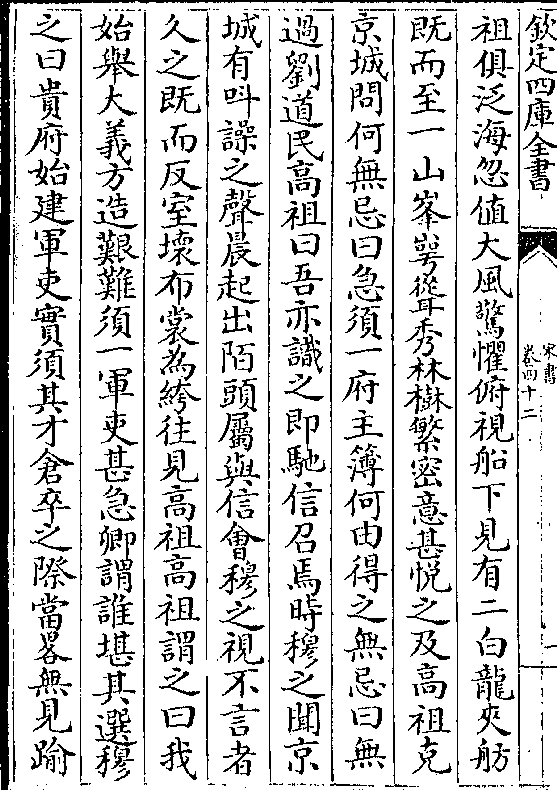 欽定四庫全書
宋書
卷四十二
一
祖俱泛海忽值大風驚懼俯視船下見有二白龍夾舫
既而至一山峯崿聳秀林樹繁密意甚悅之及高祖克
京城問何無忌曰急須一府主簿何由得之無忌曰無
過劉道民高祖曰吾亦識之即馳信召焉時穆之聞京
城有叫譟之聲晨起出陌頭屬與信會穆之視不言者
久之既而反室壞布裳為絝往見高祖高祖謂之曰我
始舉大義方造艱難須一軍吏甚急卿謂誰堪其選穆
之曰貴府始建軍吏實須其才倉卒之際當畧無見踰